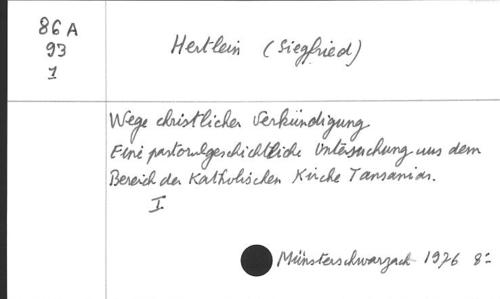 86 A
93
1
Hertlein (Siegfried)
Wege christlicher Verkündigung
Eine pastoralgeschichtliche Untersuchung aus dem
Bereich der Katholischen Kirche Tansanias.
I
Münsterschwarzach 1976 8°